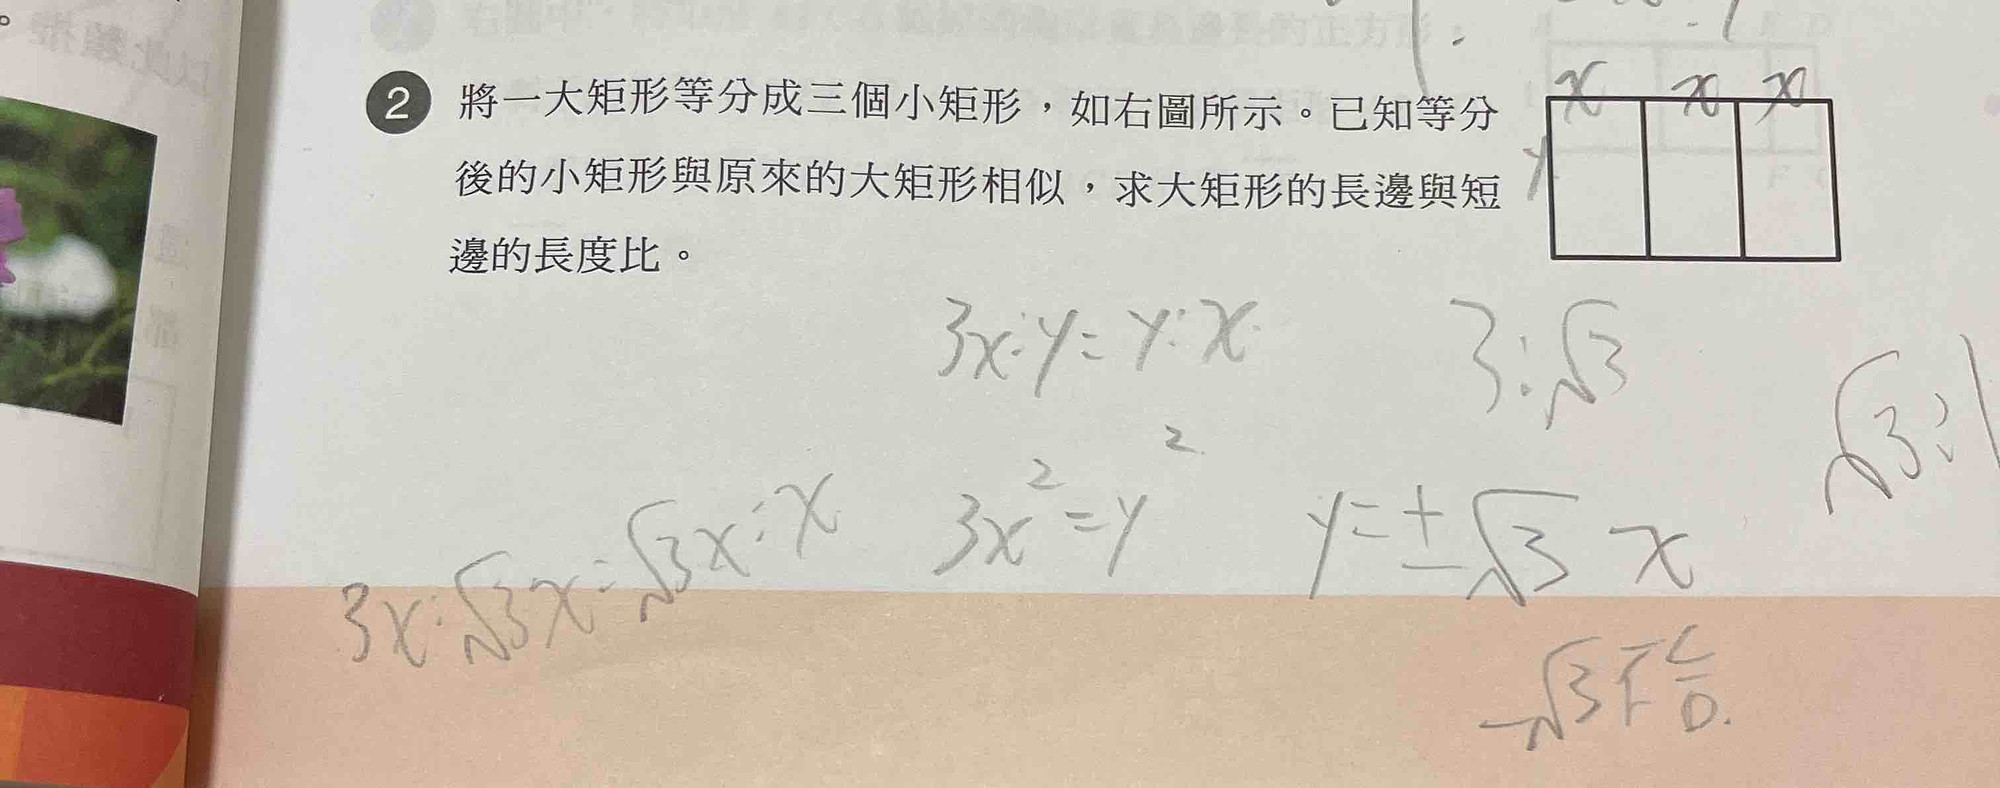 x x x
2 將一大矩形等分成三個小矩形，如右圖所示。已知等分
y
後的小矩形與原來的大矩形相似，求大矩形的長邊與短
邊的長度比。
3x:y=y:x
3:√3
√3:1
3x²=y²
y=±√3 x
3x:√3x=√3x:x
-√3不合